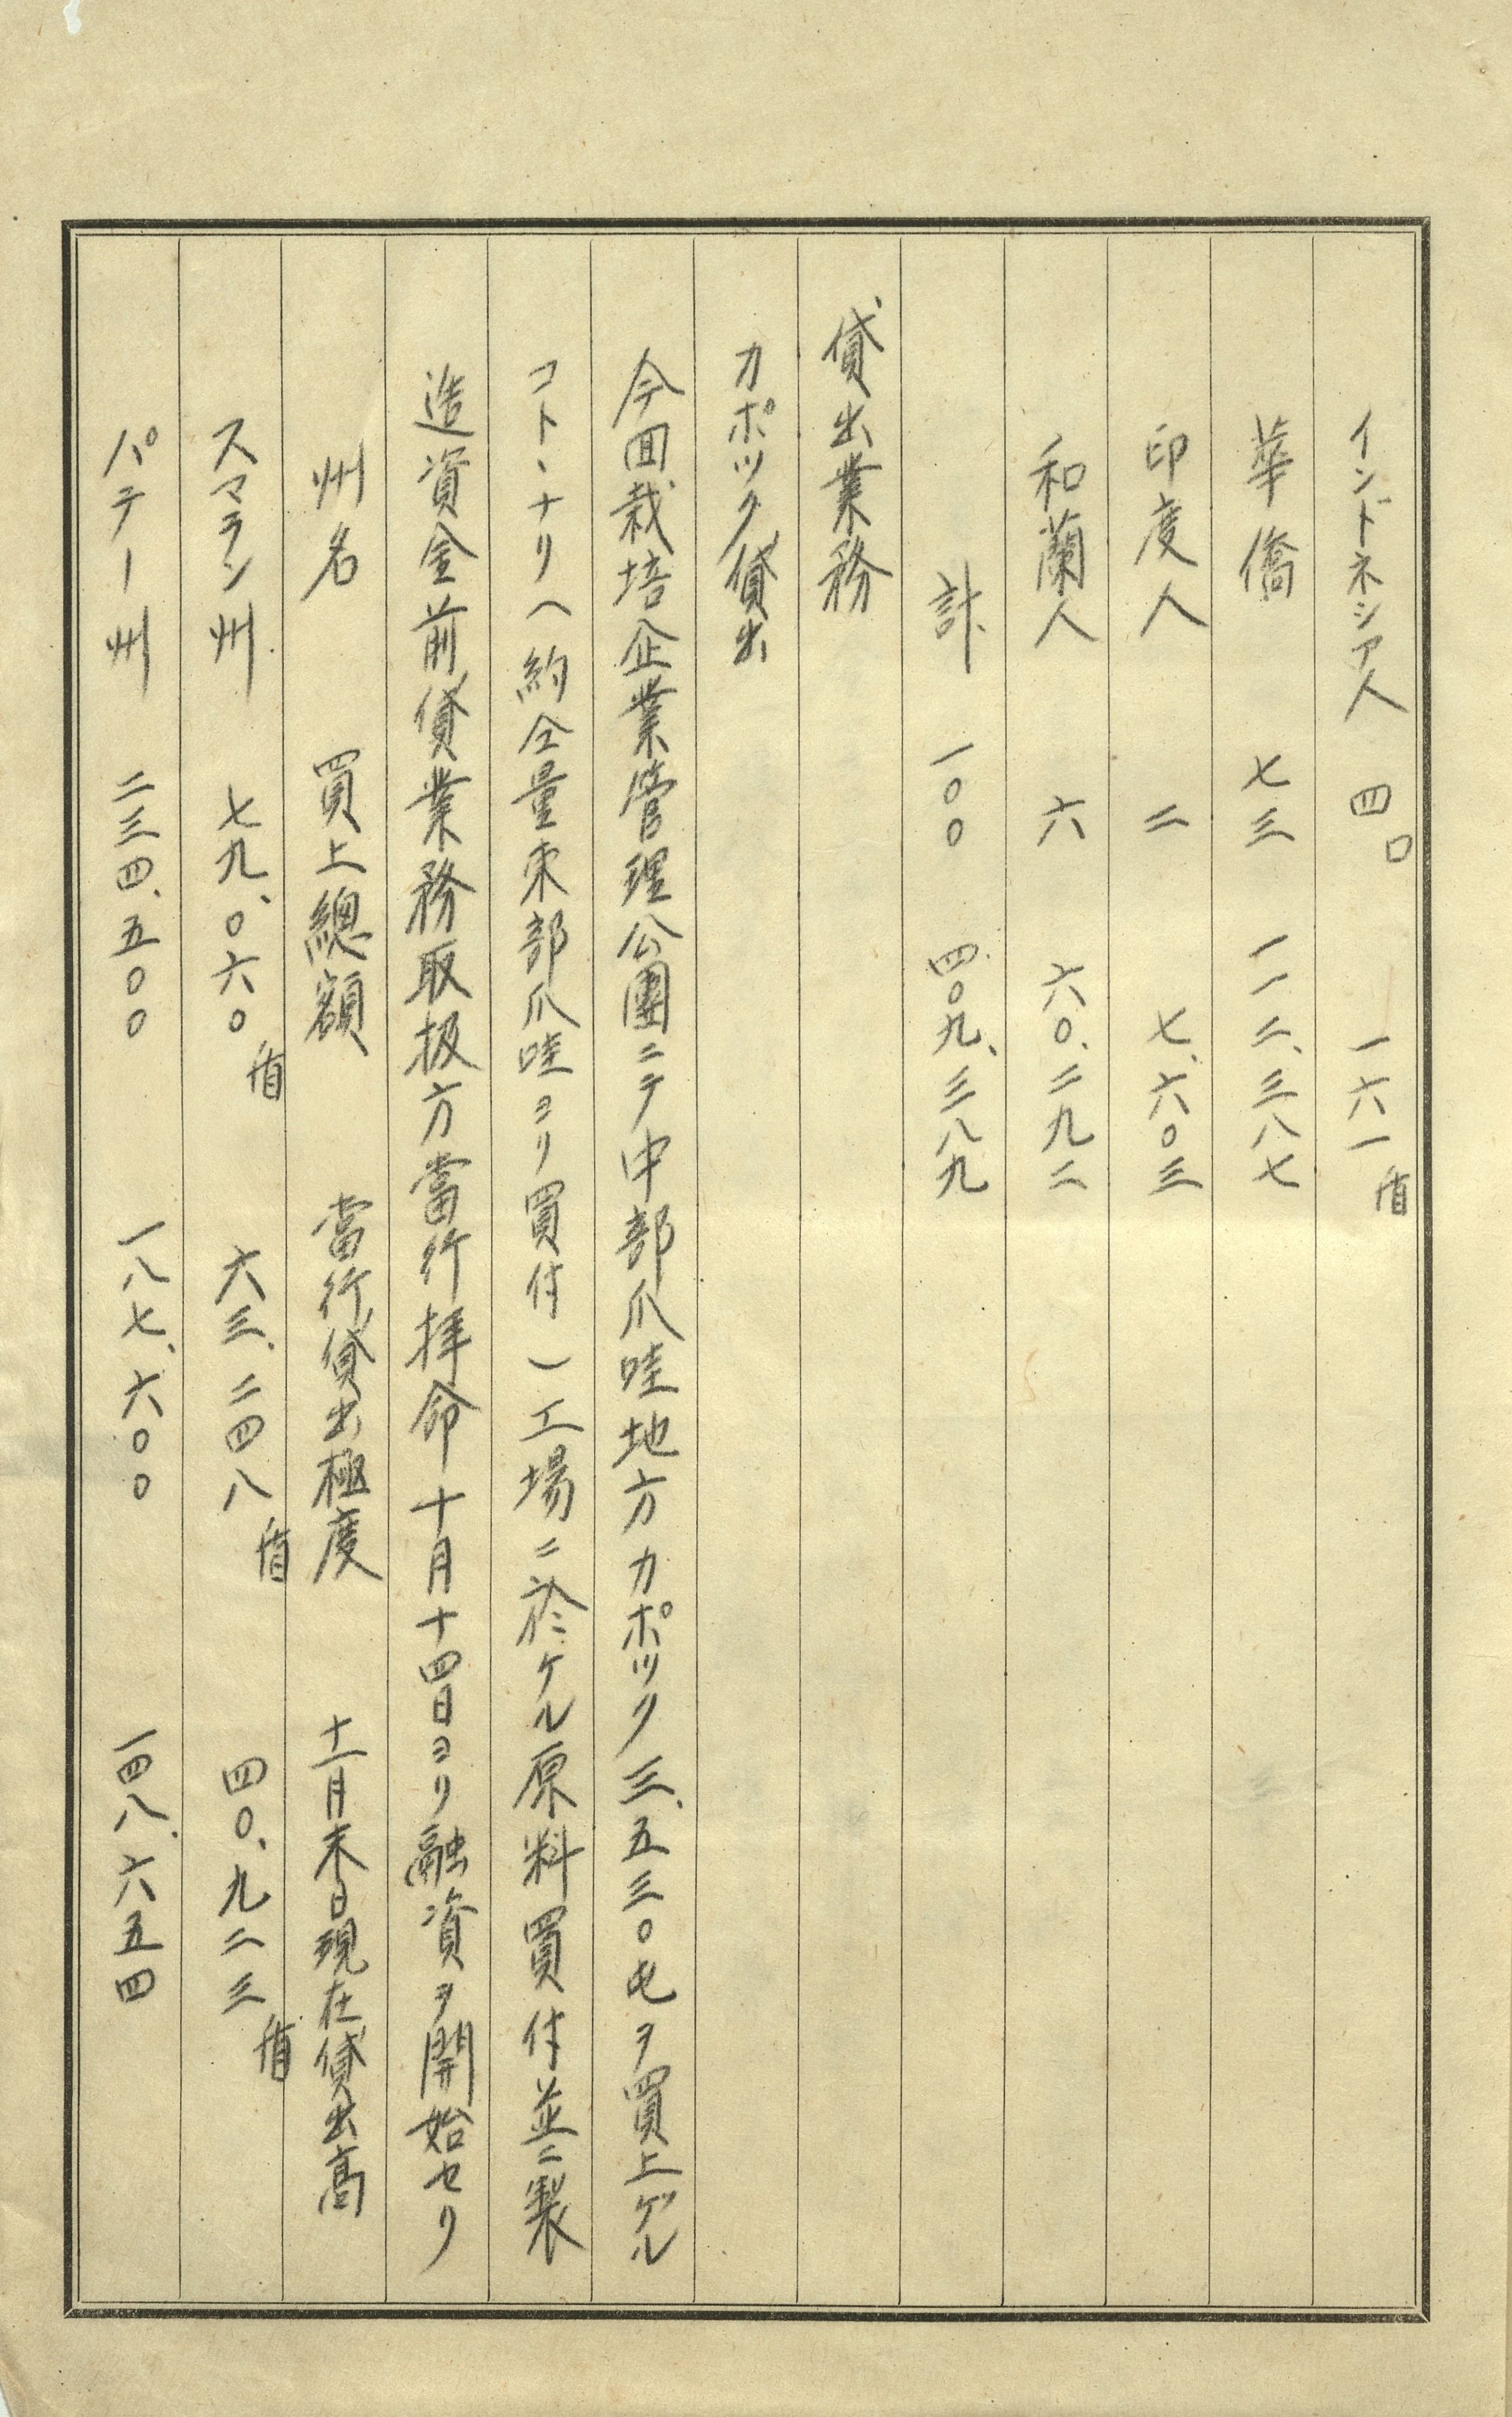 インドネシア人 四口 一六一盾
華僑 七三 一一二、三八七
印度人 二 七、六〇三
和蘭人 六 六〇、二九二
計 一〇〇 四〇九、三八九
貸出業務
カポツク貸出
今囬栽培企業管理公團ニテ中部爪哇地方カポツク三、五三〇屯ヲ買上ゲル
コトヽナリ(約仝量東部爪哇ヨリ買付)工場ニ於ケル原料買付並ニ製
造資金前貸業務取扱方當行拝命十月十四日ヨリ融資ヲ開始セリ
州名 買上總額 當行貸出極度 十一月末日現在貸出高
スマラン州 七九、〇六〇盾 六三、二四八盾 四〇、九二三盾
パテー州 二三四、五〇〇 一八七、六〇〇 一四八、六五四